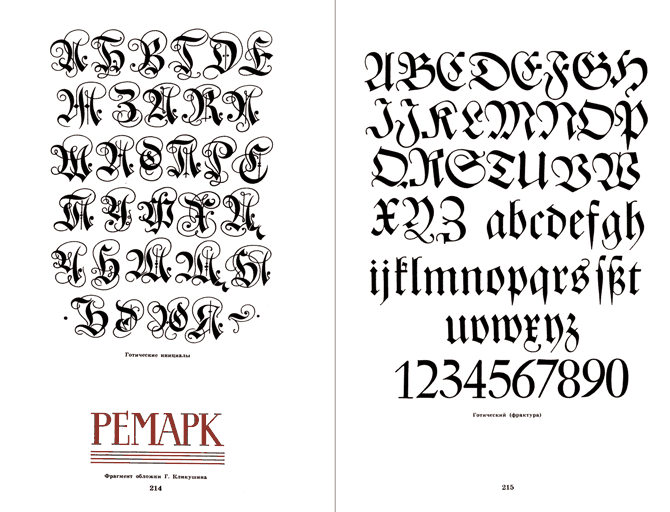 АБВГДЕ
ЖЗИКЛ
МНОПРС
ТУФХЦ
ЧЪШЩЫ
·ЬЭЮЯ~·
Готические инициалы
РЕМАРК
Фрагмент обложки Г. Кликушина
214
ABCDEFGH
IJKLMNOP
QRSTUVW
XYZ abcdefgh
ijklmnopqrsſßt
uvwxyz
1234567890
Готический (фрактура)
215